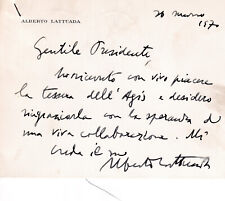 ALBERTO LATTUADA
26 marzo
1970
Gentile Presidente,
ho ricevuto con vivo piacere
la tessera dell'Agis e desidero
ringraziarla con la speranza di
una viva collaborazione. Mi
creda il suo
Alberto Lattuada